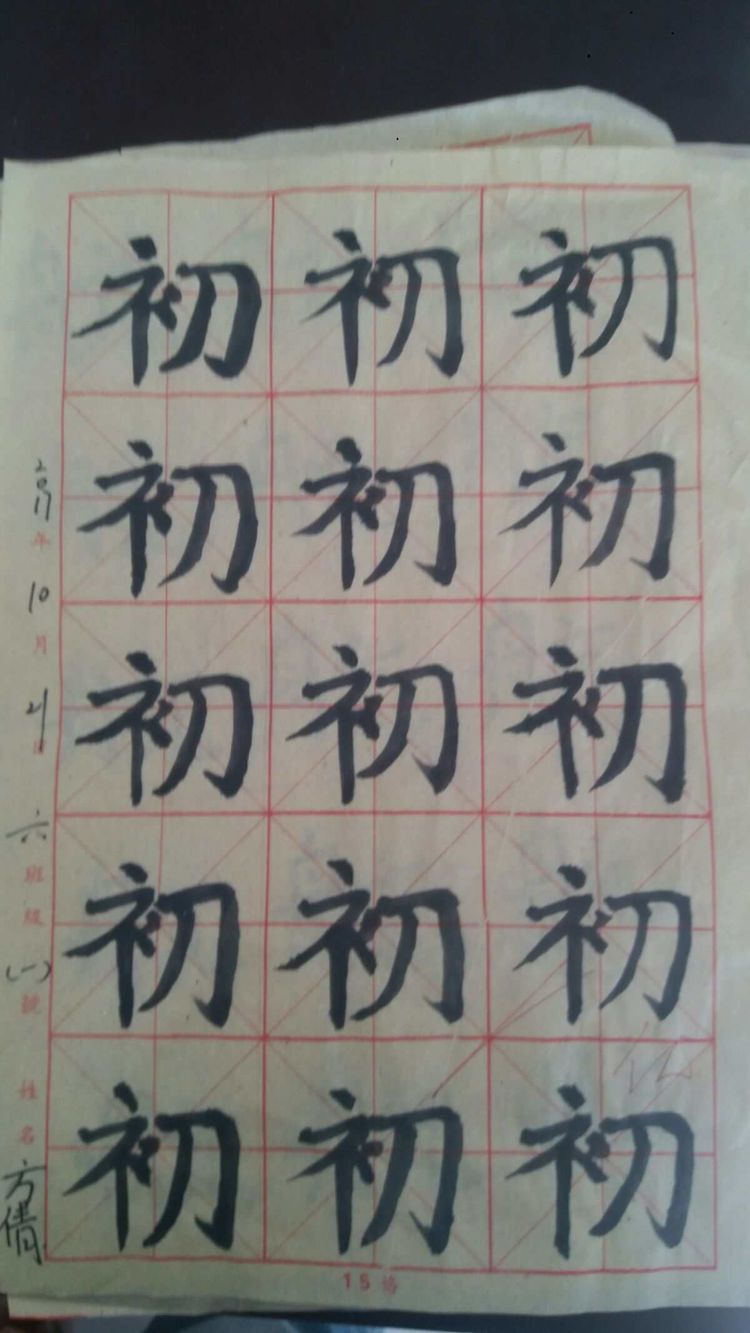 初初初
初初初
初初初
初初初
初初初
年10月21日六班級(一)號姓名方倩
15格